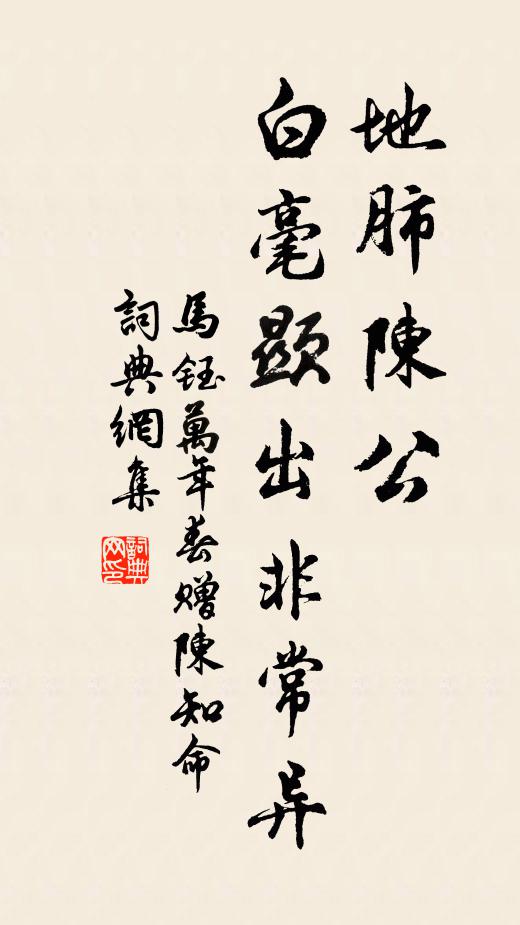 地肺陳公
白毫顯出非常异
馬鈺萬年春贈陳知命
詞典網集
詞典网印